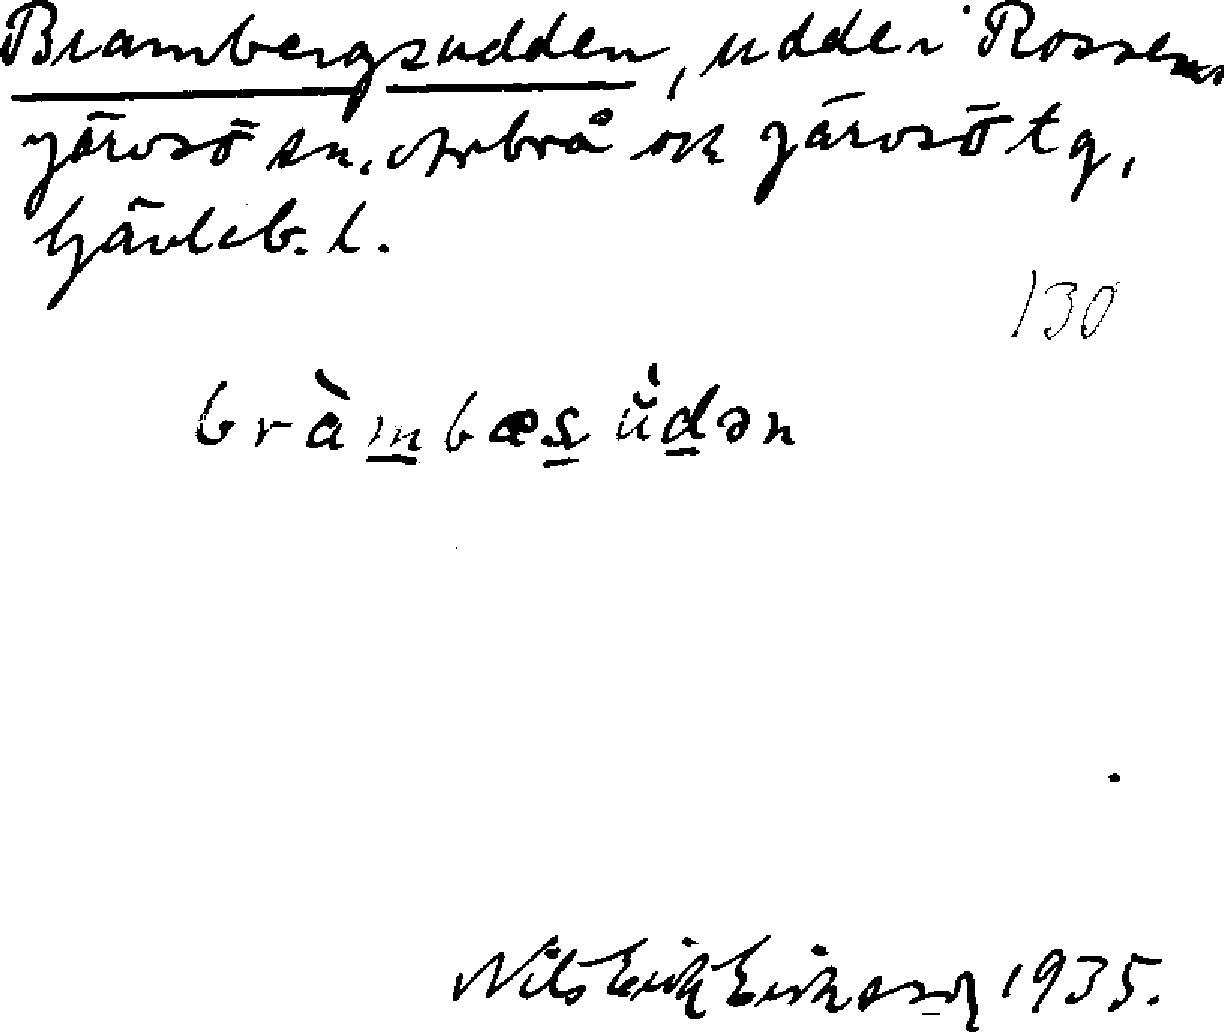 Brambergsudden, udde i Rossen
Järvsö sn. Arbrå ock Järvsö tg,
Gävleb. l.
130
bràmbæs ŭ́dən
Nils Erik Eriksson 1935.